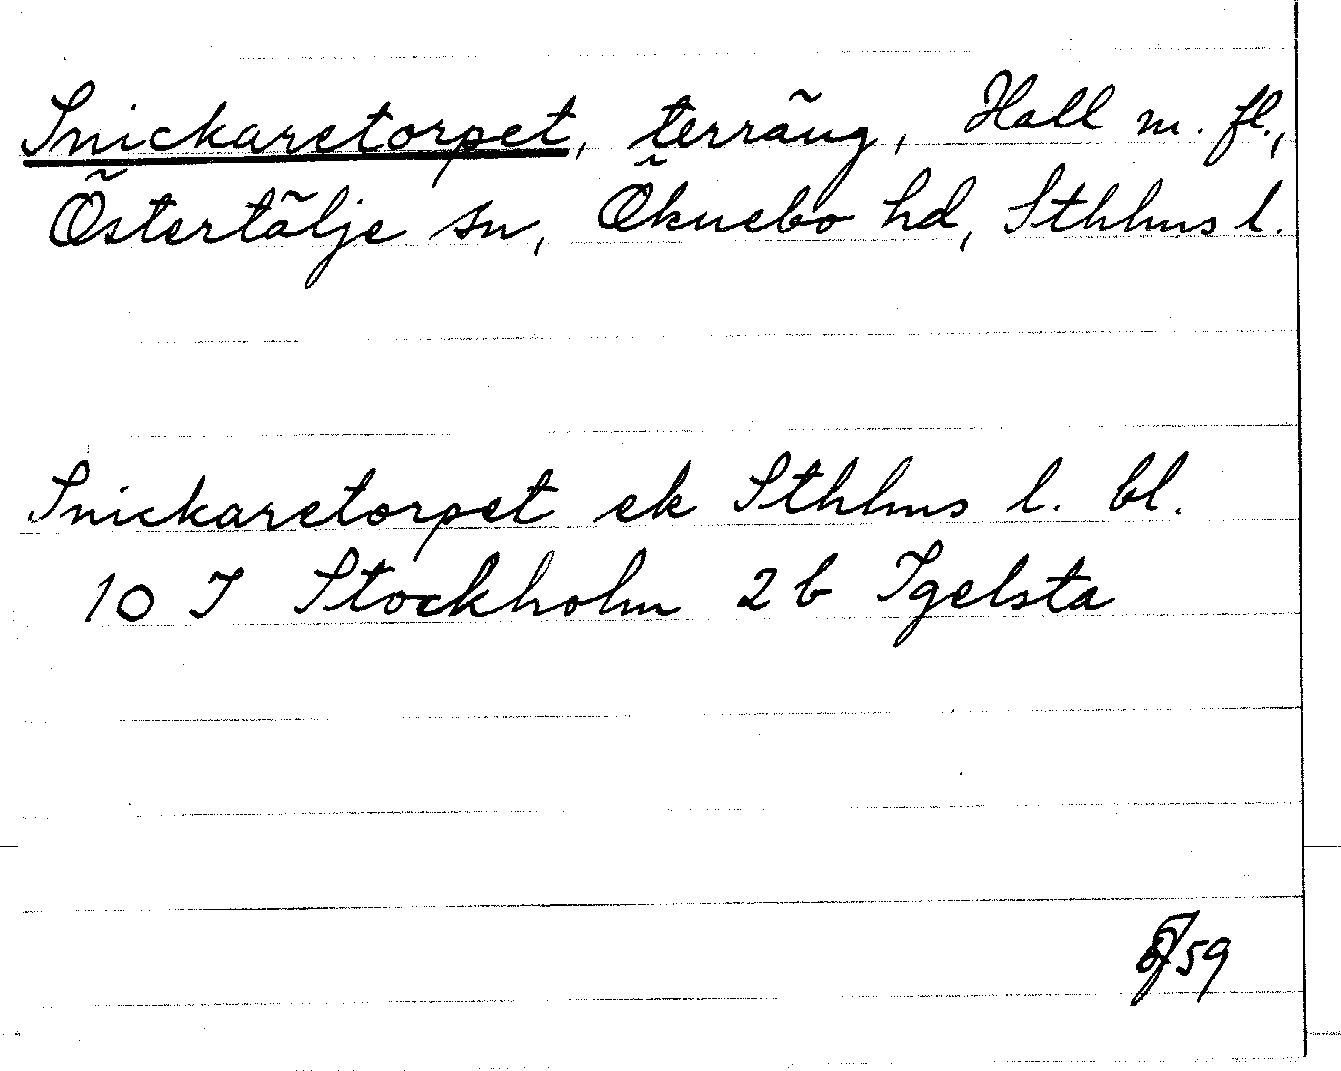 Snickaretorpet, terräng, Hall m. fl.,
Östertälje sn, Öknebo hd, Sthlms l.
Snickaretorpet ek Sthlms l. bl.
10 I Stockholm 2 b Igelsta
59